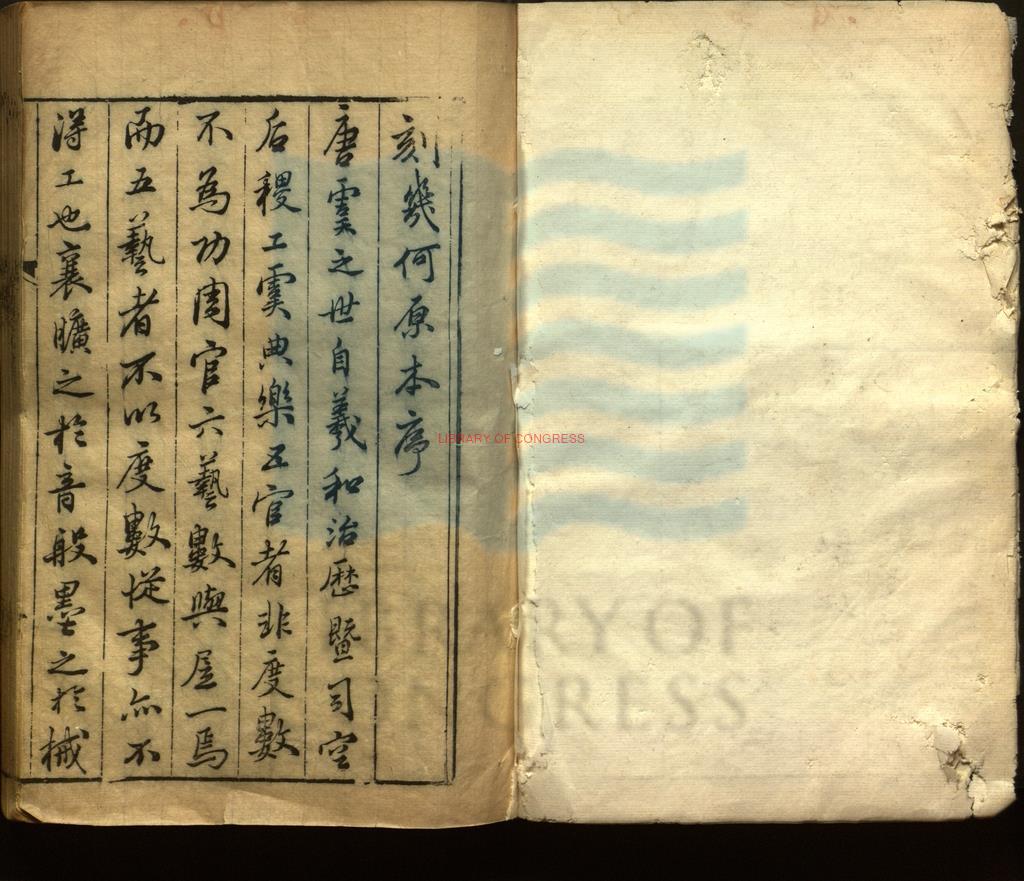 刻幾何原本序
唐虞之世自羲和治歷暨司空
后稷工虞典樂五官者非度數
不為功周官六藝數與居一焉
而五藝者不以度數從事亦不
得工也襄曠之於音般墨之於械
LIBRARY OF CONGRESS
LIBRARY OF
CONGRESS